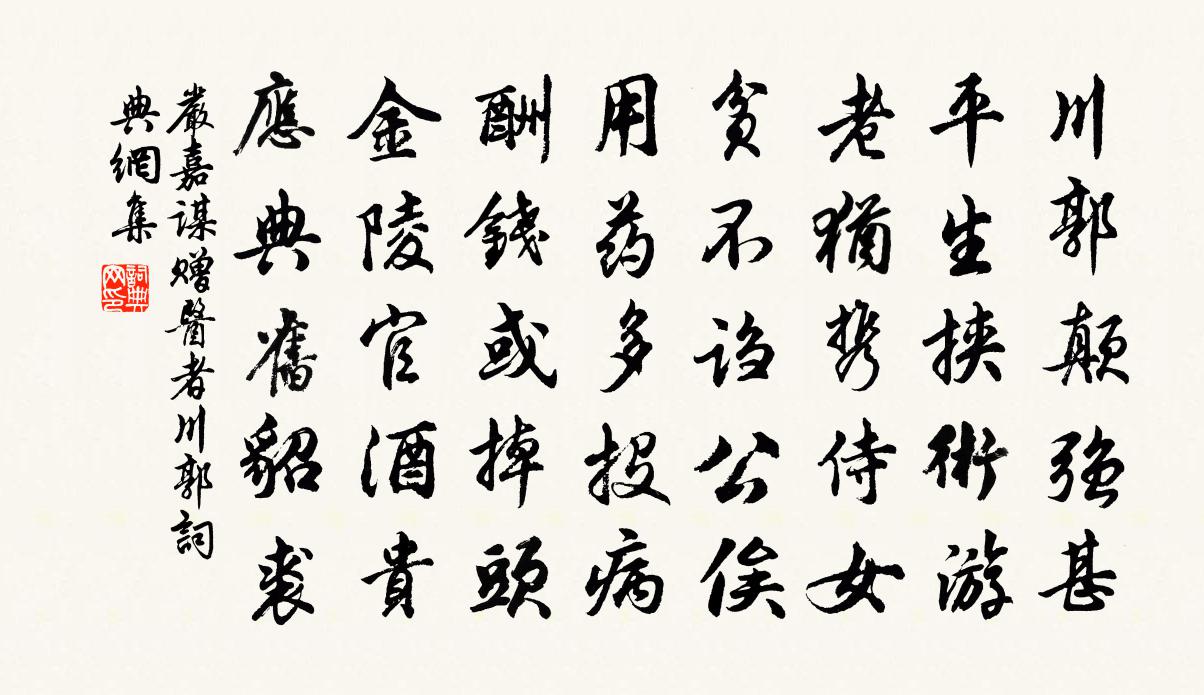 川郭顛強甚
平生挟術游
老猶携侍女
貧不諂公侯
用药多投病
酬錢或掉頭
金陵官酒貴
應典舊貂裘
嚴嘉謀贈醫者川郭詞
典網集
詞典網印